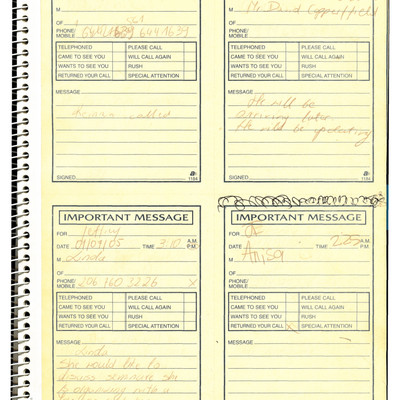 M
OF
PHONE/
MOBILE
TELEPHONED PLEASE CALL
CAME TO SEE YOU WILL CALL AGAIN
WANTS TO SEE YOU RUSH
RETURNED YOUR CALL SPECIAL ATTENTION
MESSAGE
called
SIGNED 1184
M Mr. David Copperfield
OF
PHONE/
MOBILE
TELEPHONED PLEASE CALL
CAME TO SEE YOU WILL CALL AGAIN
WANTS TO SEE YOU RUSH
RETURNED YOUR CALL SPECIAL ATTENTION
MESSAGE
He will be
later
He will be
SIGNED 1184
IMPORTANT MESSAGE
FOR Jeffrey
DATE 01/09/05 TIME 3:10 A.M.
P.M.
M Linda
OF
PHONE/
MOBILE
TELEPHONED PLEASE CALL
CAME TO SEE YOU WILL CALL AGAIN
WANTS TO SEE YOU RUSH
RETURNED YOUR CALL SPECIAL ATTENTION
MESSAGE
Linda
She would like to
discuss
by organising with a
IMPORTANT MESSAGE
FOR JE
DATE TIME 2:25 A.M.
P.M.
M Anisa
OF
PHONE/
MOBILE
TELEPHONED PLEASE CALL
CAME TO SEE YOU WILL CALL AGAIN
WANTS TO SEE YOU RUSH
RETURNED YOUR CALL SPECIAL ATTENTION
MESSAGE